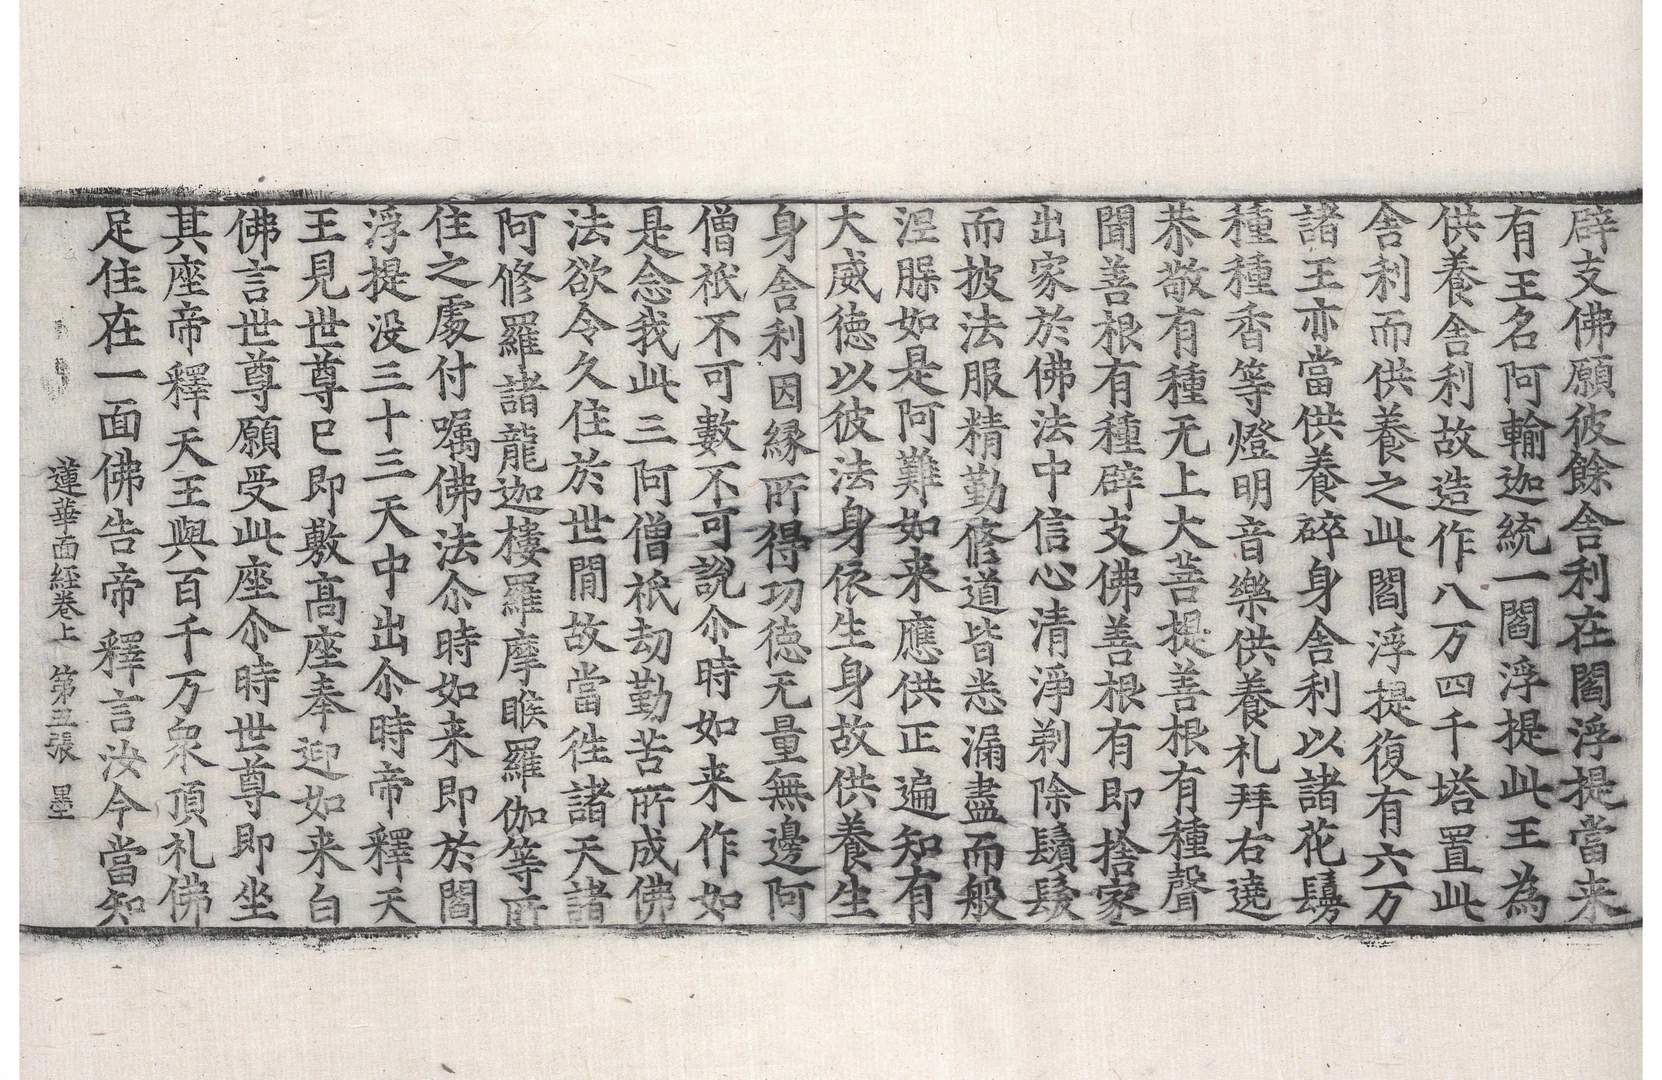 辟支佛願彼餘舍利在閻浮提當来
有王名阿輸迦統一閻浮提此王為
供養舍利故造作八万四千塔置此
舍利而供養之此閻浮提復有六万
諸王亦當供養碎身舍利以諸花鬘
種種香等燈明音樂供養礼拜右遶
恭敬有種无上大菩提善根有種聲
聞善根有種辟支佛善根有即捨家
出家於佛法中信心清淨剃除鬚髮
而披法服精勤修道皆悉漏盡而般
涅槃如是阿難如来應供正遍知有
大威徳以彼法身依生身故供養生
身舍利因縁所得功徳无量無邊阿
僧祇不可數不可説尒時如来作如
是念我此三阿僧祇劫勤苦所成佛
法欲令久住於世閒故當往諸天諸
阿修羅諸龍迦樓羅摩睺羅伽等所
住之處付嘱佛法尒時如来即於閻
浮提没三十三天中出尒時帝釋天
王見世尊已即敷髙座奉迎如来白
佛言世尊願受此座尒時世尊即坐
其座帝釋天王與百千万衆頂礼佛
足住在一面佛告帝釋言汝今當知
蓮華面経卷上　第五張　墨